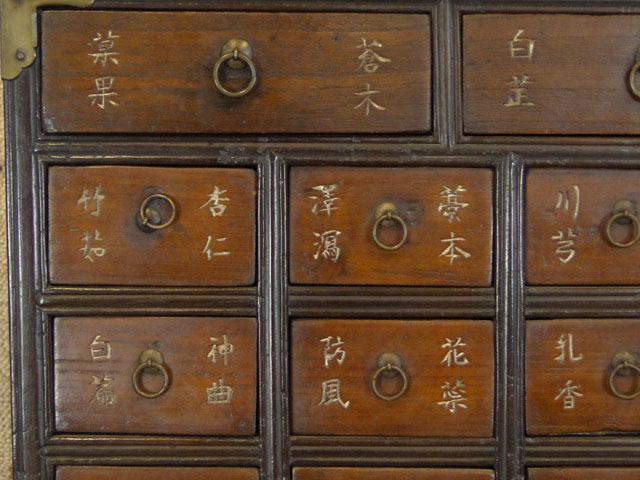 草果
蒼木
白芷
竹茹
杏仁
澤瀉
藁本
川芎
白
神曲
防風
花
乳香